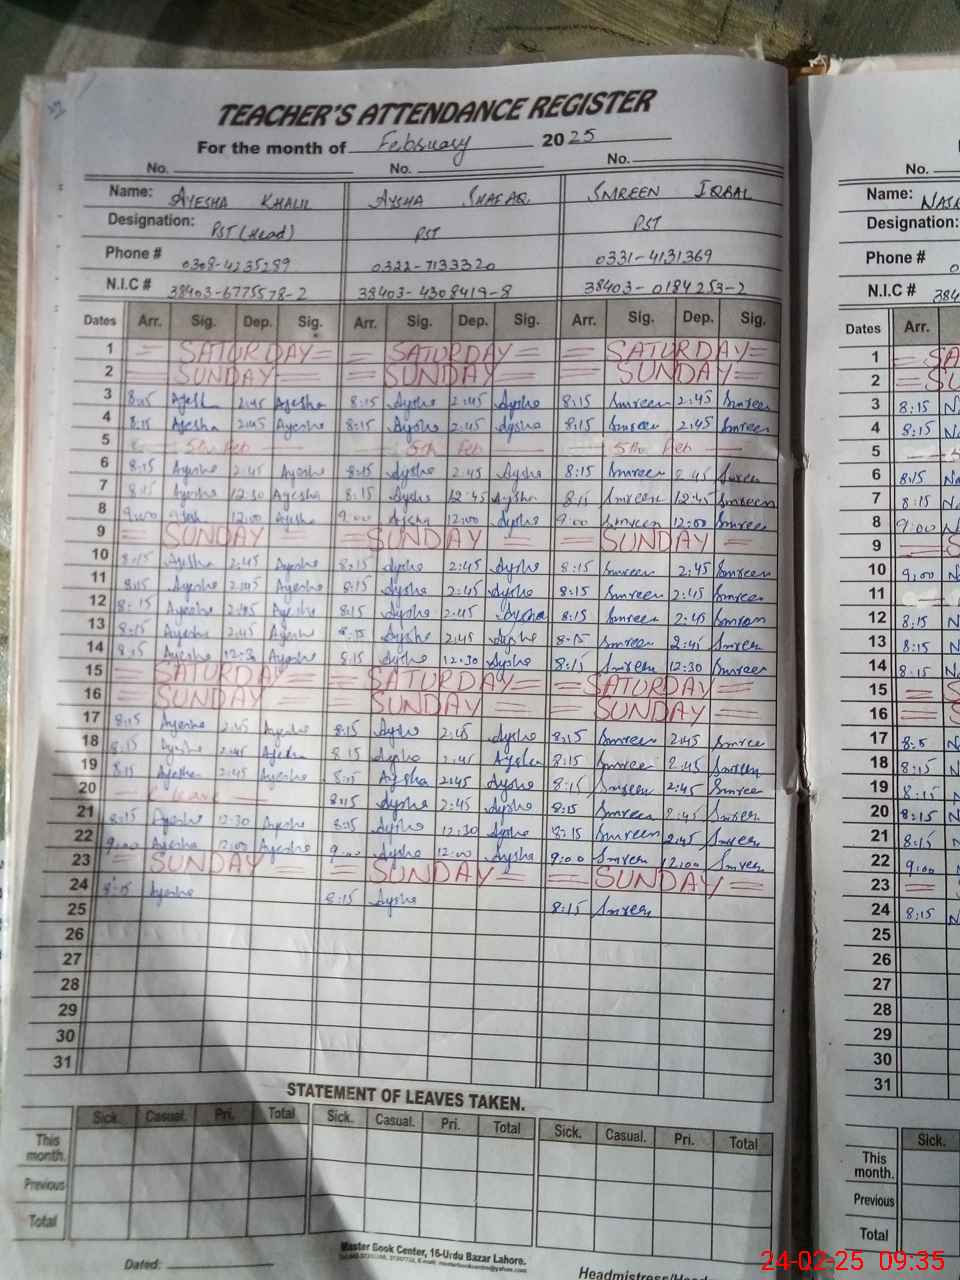 TEACHER'S ATTENDANCE REGISTER
For the month of February 2025
No. No. No. No.
Name: AYESHA KHALIL AYSHA SHAFAQ SMREEN IQBAL Name:
Designation: PST (Head) PST PST Designation:
Phone # 0308-4235289 0322-7133320 0331-4131369 Phone #
N.I.C # 38403-6775578-2 38403-4308419-8 38403-0184253-2 N.I.C #
Dates Arr. Sig. Dep. Sig. Arr. Sig. Dep. Sig. Arr. Sig. Dep. Sig. Dates Arr.
1 SATURDAY SATURDAY SATURDAY 1
2 SUNDAY SUNDAY SUNDAY 2
3 8:15 2:45 Ayesha 8:15 Aysha 2:45 Aysha 8:15 Smreen 2:45 Smreen 3 8:15
4 8:15 Ayesha 2:45 Ayesha 8:15 Aysha 2:45 Aysha 8:15 Smreen 2:45 Smreen 4 8:15
5 5th Feb 5th Feb 5th Feb 5
6 8:15 Ayesha 2:45 Ayesha 8:15 Aysha 2:45 Aysha 8:15 Smreen 2:45 Smreen 6 8:15
7 8:15 Ayesha 12:30 Ayesha 8:15 Aysha 12:45 Aysha 8:15 Smreen 12:45 Smreen 7 8:15
8 9:00 12:00 Ayesha 9:00 Aysha 12:00 Aysha 9:00 Smreen 12:00 Smreen 8 9:00
9 SUNDAY SUNDAY SUNDAY 9
10 8:15 Ayesha 2:45 Ayesha 8:15 Aysha 2:45 Aysha 8:15 Smreen 2:45 Smreen 10 9:00
11 8:15 Ayesha 2:45 Ayesha 8:15 Aysha 2:45 Aysha 8:15 Smreen 2:45 Smreen 11
12 8:15 Ayesha 2:45 Ayesha 8:15 Aysha 2:45 Aysha 8:15 Smreen 2:45 Smreen 12 8:15
13 8:15 Ayesha 2:45 Ayesha 8:15 Aysha 2:45 Aysha 8:15 Smreen 2:45 Smreen 13 8:15
14 8:15 Ayesha 12:30 Ayesha 8:15 Aysha 12:30 Aysha 8:15 Smreen 12:30 Smreen 14 8:15
15 SATURDAY SATURDAY SATURDAY 15
16 SUNDAY SUNDAY SUNDAY 16
17 8:15 Ayesha 2:45 Ayesha 8:15 Aysha 2:45 Aysha 8:15 Smreen 2:45 Smreen 17
18 8:15 Ayesha 2:45 Ayesha 8:15 Aysha 2:45 Aysha 8:15 Smreen 2:45 Smreen 18 8:15
19 8:15 Ayesha 2:45 Ayesha 8:15 Aysha 2:45 Aysha 8:15 Smreen 2:45 Smreen 19 8:15
20 8:15 Aysha 2:45 Aysha 8:15 Smreen 2:45 Smreen 20 8:15
21 8:15 Ayesha 12:30 Ayesha 8:15 Aysha 12:30 Aysha 8:15 Smreen 2:45 Smreen 21 8:15
22 9:00 Ayesha 12:00 Ayesha 9:00 Aysha 12:00 Aysha 9:00 Smreen 12:00 Smreen 22 9:00
23 SUNDAY SUNDAY SUNDAY 23
24 8:15 Ayesha 8:15 Aysha 8:15 Smreen 24 8:15
25 25
26 26
27 27
28 28
29 29
30 30
31 31
STATEMENT OF LEAVES TAKEN.
Sick. Casual. Pri. Total Sick. Casual. Pri. Total Sick. Casual. Pri. Total Sick.
This month. This month.
Previous Previous
Total Total
Master Book Center, 16-Urdu Bazar Lahore.
Dated: Headmistress/
24-02-25 09:35